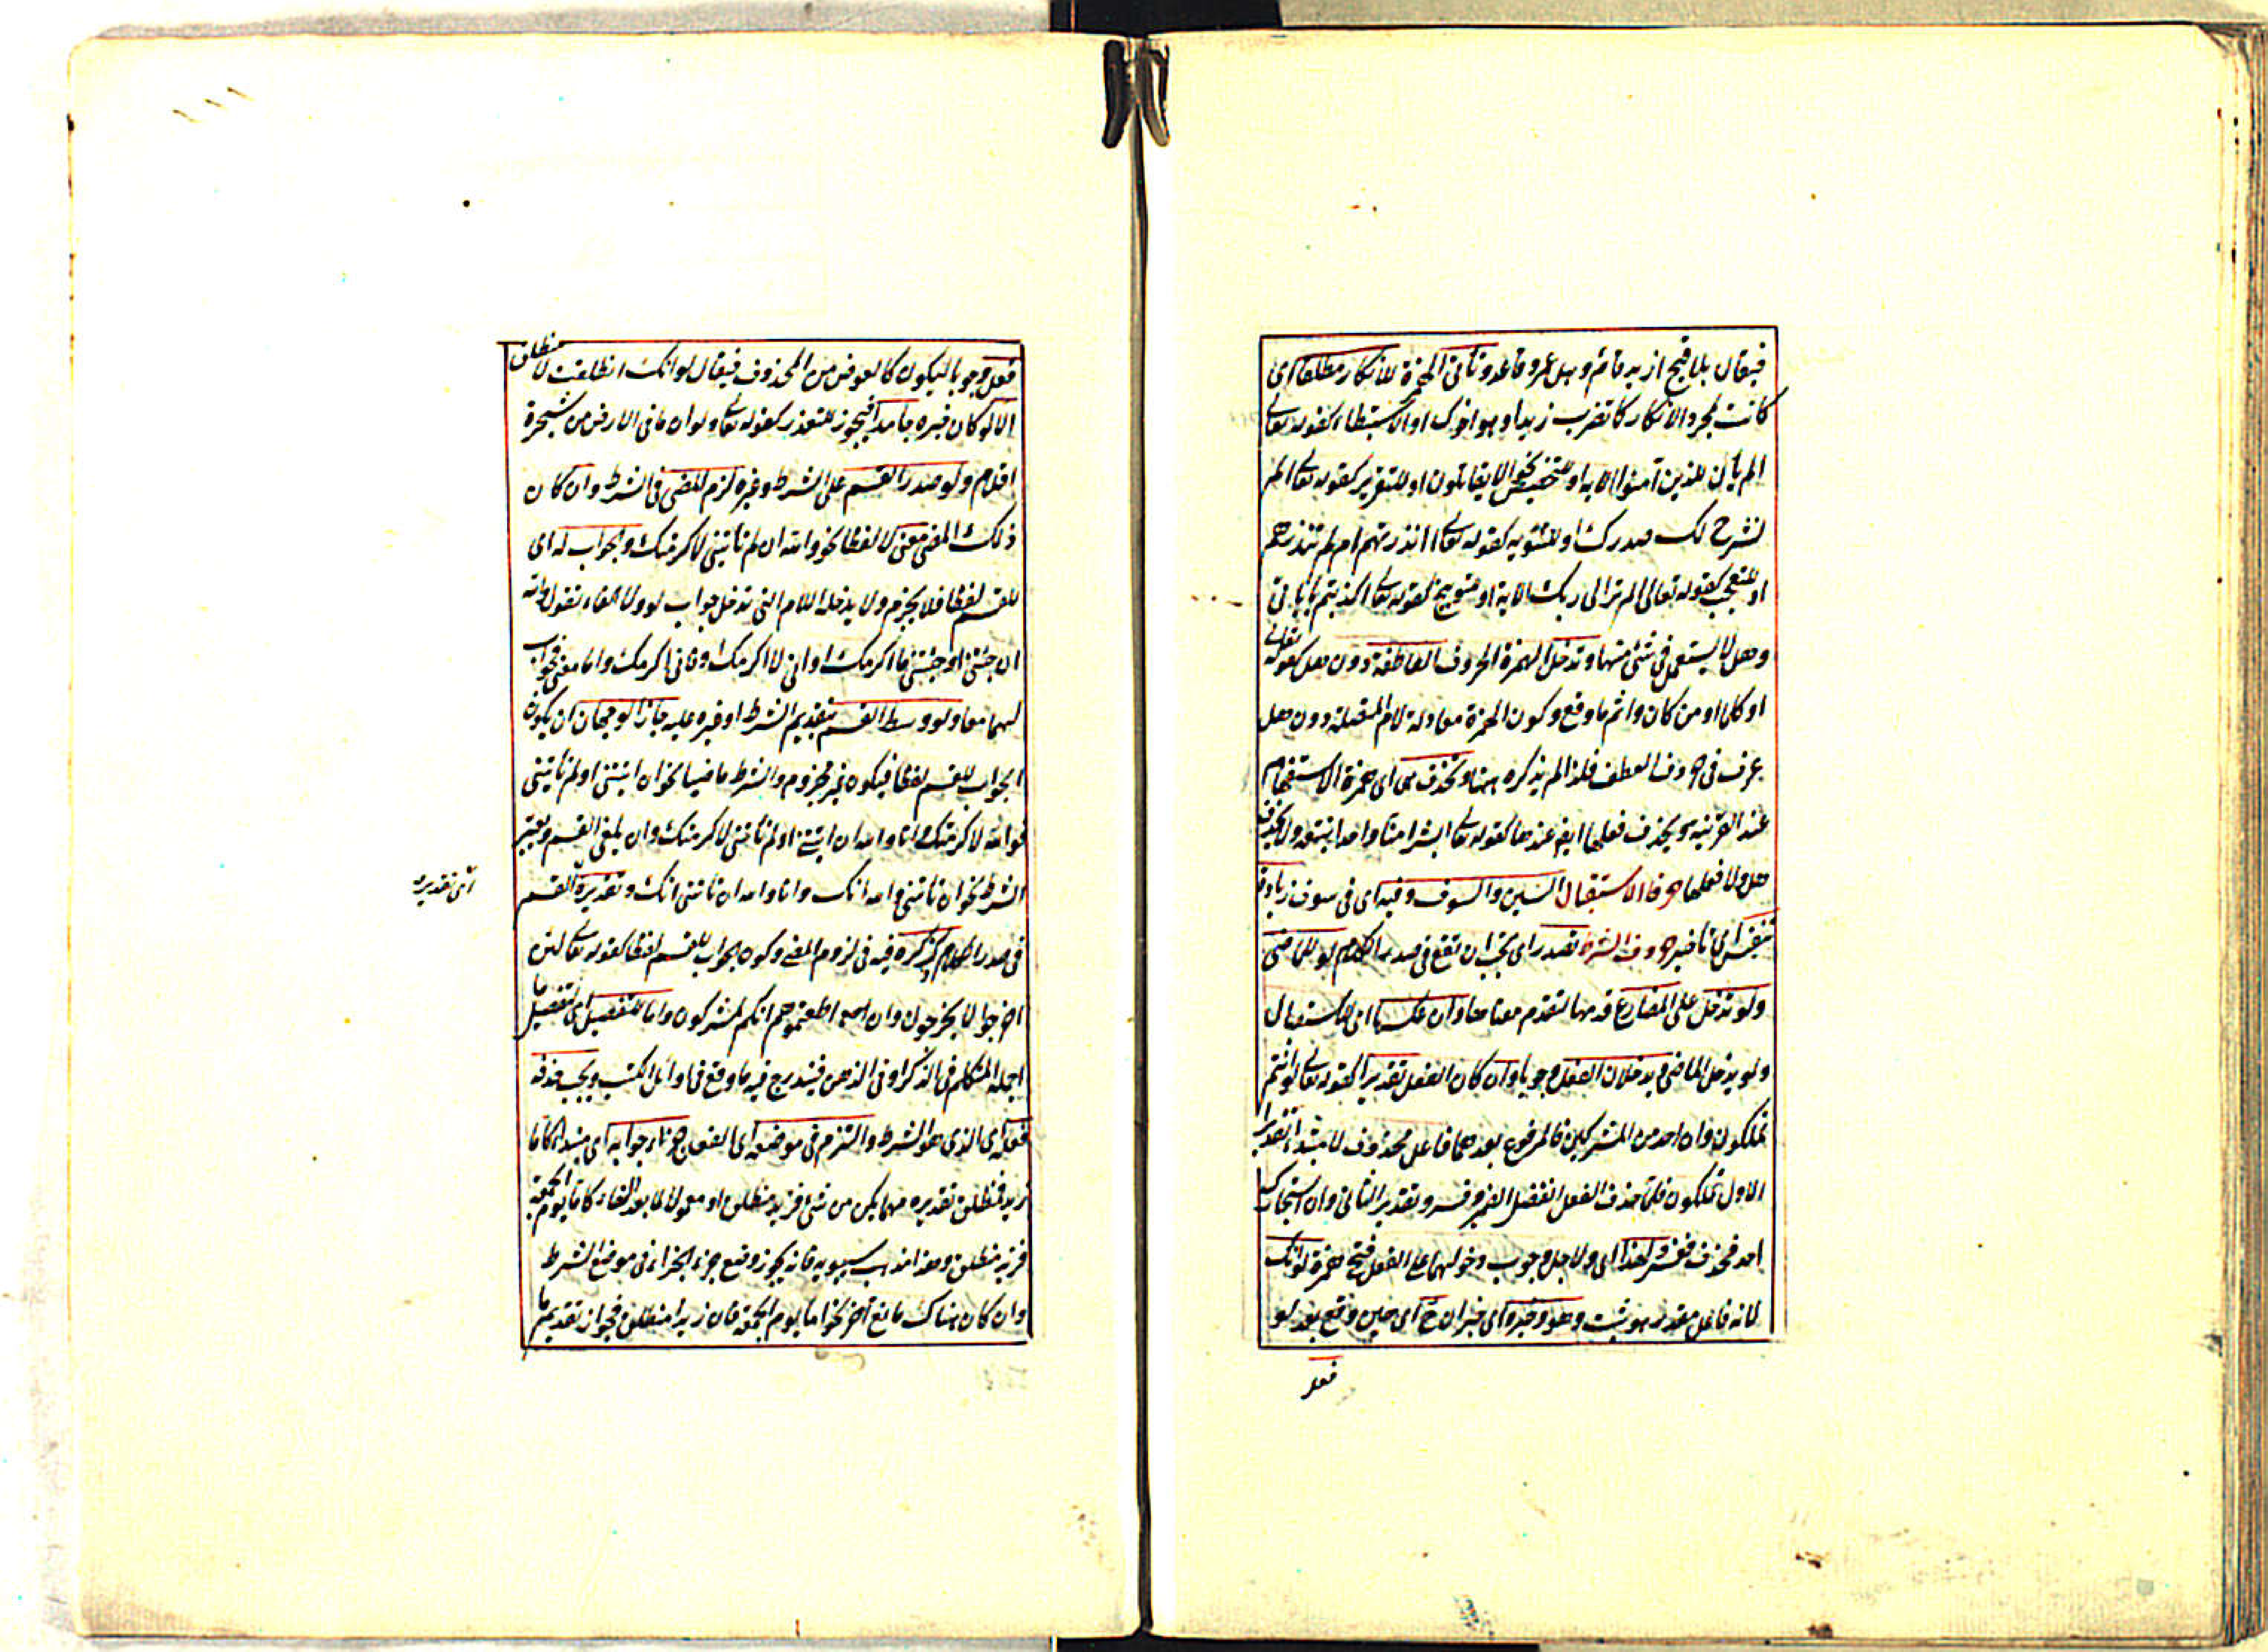 فيقال بلا قبح ازيد قائم وهل عمرو قاعد وتأتى الهمزة للانكار مطلقا اى
كانت لمجرد الانكار كاتضرب زيدا وهو اخوك او الاستبطاء كقوله تعالى
الم يأن للذين آمنوا الاية او للتحضيض نحو الا يقاتلون او للتقرير كقوله تعالى الم
نشرح لك صدرك او للتسوية كقوله تعالى اانذرتهم ام لم تنذرهم
او للتعجب كقوله تعالى الم تر الى ربك الاية او توبيخ كقوله تعالى اكذبتم بآياتى
وهل لا يستعمل فى شئ منها وتدخل الهمزة الحروف العاطفة دون هل كقوله تعالى
او كلما او من كان واثم ما وقع وكون الهمزة معادلة لام المتصلة دون هل
عرف فى حروف العطف فلذا لم يذكره ههنا وتحذف هى اى همزة الاستفهام
عند القرينة ويحذف فعلها ايض عندها كقوله تعالى ابشرا منا واحدا نتبعه ولا يحذف
هل ولا فعلها حرفا الاستقبال السين والسوف وفيه اى فى سوف زيادة
تنفيس اى تأخير حروف الشرط تصدر اى يجب ان تقع فى صدر الكلام لو للماضى
ولو تدخل على المضارع قدمها لتقدم معناها وان عكسها اى للاستقبال
ولو يدخل الماضى ويدخلان الفعل وجوبا وان كان الفعل تقديرا كقوله تعالى لو انتم
تملكون وان احد من المشركين فالمرفوع بعدهما فاعل محذوف لا مبتدأ تقدير
الاول تملكون فلما حذف الفعل انفصل الضمير وفسر وتقدير الثانى وان استجارك
احد فحذف ففسر لهذا اى ولاجل وجوب دخولهما على الفعل فتح همزة لو انك
لانه فاعل مقدر هو ثبت وهو وخبره اى خبر ان ح اى حين وقع بعد لو
فعل
فعل وجوبا ليكون كالعوض من المحذوف فيقال لو انك انطلقت لا منطلق
الا لو كان خبره جامدا فيجوز للتعذر كقوله تعالى ولو ان ما فى الارض من شجرة
اقلام ولو صدر القسم على الشرط وغيره لزم المضى فى الشرط وان كان
ذلك المضى معنى لا لفظا نحو والله ان لم تأتينى لاكرمتك والجواب له اى
للقسم لفظا فلا يجزم ولا يدخله اللام التى تدخل جواب لو ولا الفاء تقول والله
ان جئتنى او جئتنى ما اكرمك او انى لا اكرمك وفانى اكرمك واما معنى فجواب
لهما معا ولو وسط القسم بتقديم الشرط او غيره عليه جاز الوجهان ان يكون
الجواب للقسم لفظا فيكون غير مجزوم والشرط ماضيا نحو ان اتيتنى او لم تأتينى
فوالله لاكرمتك وانا والله ان اتيتنى او لم تأتنى لاكرمتك وان يلغى القسم ويعتبر
الشرط نحو ان تأتنى والله انك وانا والله ان تأتنى انك وتقديره القسم
اى تقديره
فى صدر الكلام كذكره فيه فى لزوم المضى وكون الجواب للقسم لفظا كقوله تعالى لئن
اخرجوا لا يخرجون وان اطعتموهم انكم لمشركون واما للتفصيل اى لتفصيل ما
اجمله المتكلم فى الذكر او فى الذهن فيندرج فيه ما وقع فى اوائل الكتب ويجب حذف
فعله اى الذى هو الشرط والتزم فى موضعه اى الفعل جزاء جوابه اى مبتدأ كاما
زيد فمنطلق تقديره مهما يكن من شئ فزيد منطلق او معمولا لما بعد الفاء كاما يوم الجمعة
فزيد منطلق وهذا مذهب سيبويه فانه يجوز وضع جزء الجزاء فى موضع الشرط
وان كان هناك مانع آخر نحو اما يوم الجمعة فان زيدا منطلق فجواز تقديم ما